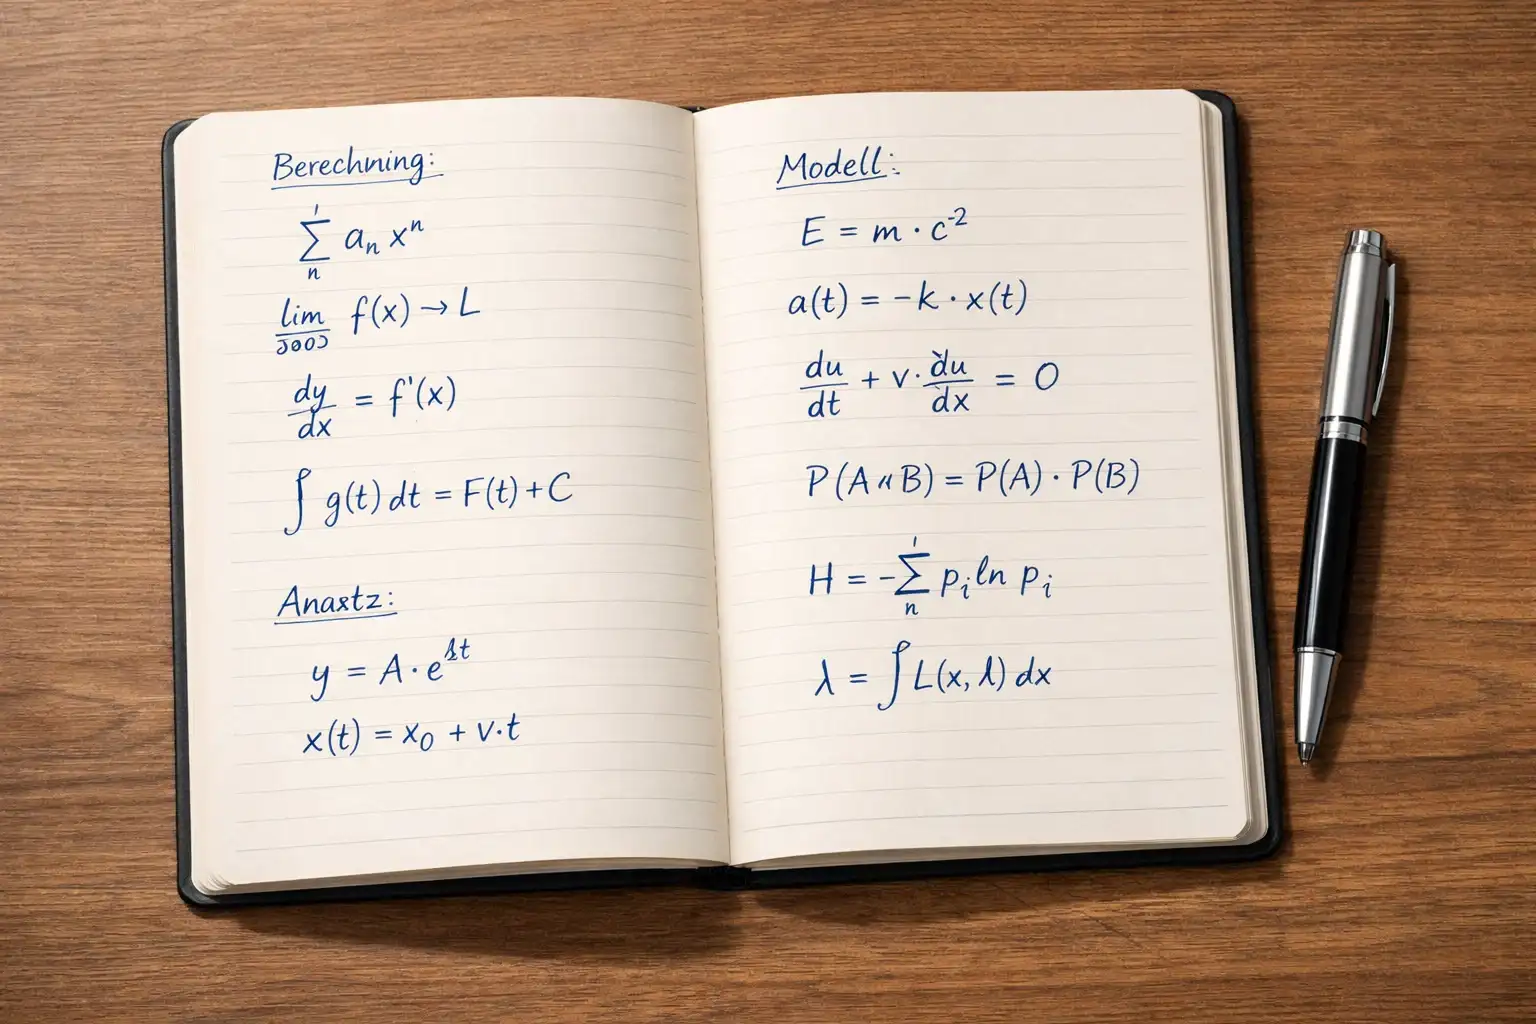 Berechnung:
∑ₙ aₙ xⁿ
lim f(x) → L
dy/dx = f'(x)
∫ g(t) dt = F(t) + C
Anastz:
y = A · e
x(t) = x₀ + v·t
Modell:
E = m · c⁻²
a(t) = -k · x(t)
du/dt + v · du/dx = 0
P(A B) = P(A) · P(B)
H = -∑ₙ pᵢ ln pᵢ
λ = ∫ L(x, λ) dx